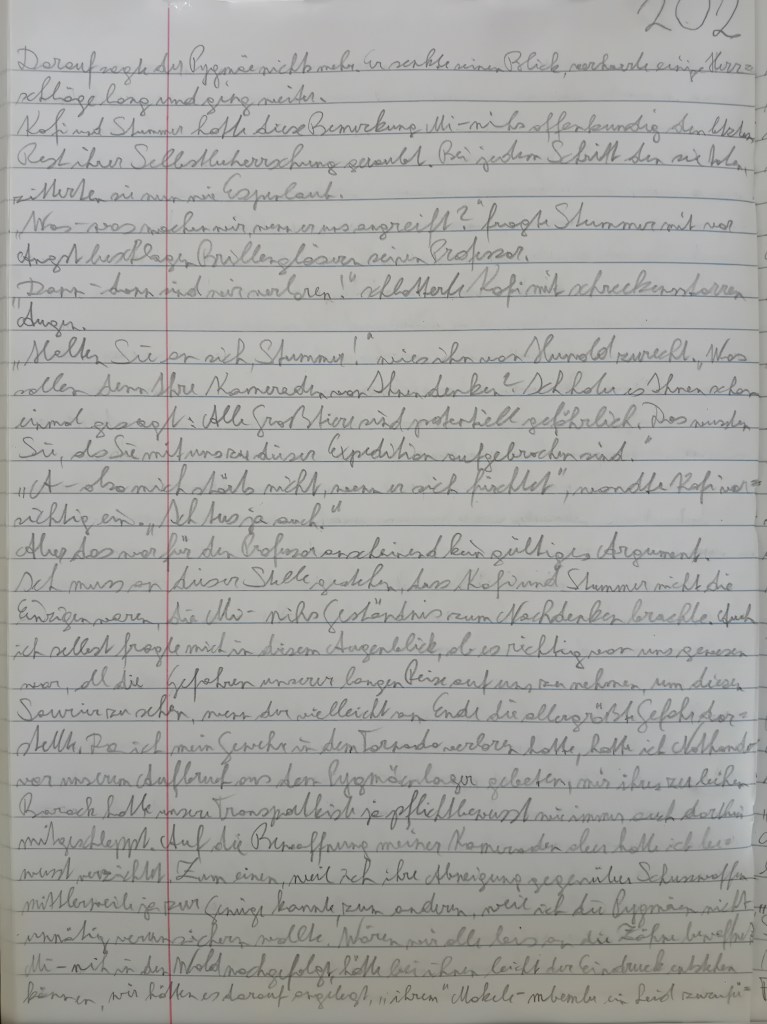 202
Darauf sagte der Pygmäe nichts mehr. Er senkte seinen Blick, verharrte einige Herz=
schläge lang und ging weiter.
Kofi und Stummer hatte diese Bemerkung Mi-nihs offenkundig den letzten
Rest ihrer Selbstbeherrschung geraubt. Bei jedem Schritt den sie taten,
zitterten sie nun wie Espenlaub.
„Was-was machen wir, wenn er uns angreift?" fragte Stummer mit vor
Angst beschlagen Brillengläsern seinen Professor.
„Dann-dann sind wir verloren!" schlotterte Kofi mit schreckensstarren
Augen.
„Halten Sie an sich, Stummer!" wies ihn von Hunold zurecht. „Was
sollen denn Ihre Kameraden von Ihnen denken? Ich habe es Ihnen schon
einmal gesagt: Alle Großtiere sind potentiell gefährlich. Das wussten
Sie, als Sie mit uns zu dieser Expedition aufgebrochen sind."
„A-also mich störts nicht, wenn er sich fürchtet", wandte Kofi vor=
sichtig ein. „Ich tus ja auch."
Aber das war für den Professor anscheinend kein gültiges Argument.
Ich muss an dieser Stelle gestehen, dass Kofi und Stummer nicht die
Einzigen waren, die Mi-nihs Geständnis zum Nachdenken brachte. Auch
ich selbst fragte mich in diesem Augenblick, ob es richtig von uns gewesen
war, all die Gefahren unserer langen Reise auf uns zu nehmen, um diesen
Saurier zu sehen, wenn der vielleicht am Ende die allergrößte Gefahr dar=
stellte. Da ich mein Gewehr in dem Tornado verloren hatte, hatte ich
vor unserem Aufbruch aus dem Pygmäenlager gebeten, mir ihres zu leihen.
Barack hatte unsere Transportkiste ja pflichtbewusst wie immer auch dorthin
mitgeschleppt. Auf die Bewaffnung meiner Kameraden aber hatte ich be=
wusst verzichtet. Zum einen, weil ich ihre Abneigung gegenüber Schusswaffen
mittlerweile ja zur Genüge kannte, zum anderen, weil ich die Pygmäen nicht
unnötig verunsichern wollte. Wären wir alle bis an die Zähne bewaffnet
Mi-nih in den Wald nachgefolgt, hätte bei ihnen leicht der Eindruck entstehen
können, wir hätten es darauf angelegt, „ihrem" Mokele-mbembe ein Leid zuzufü=